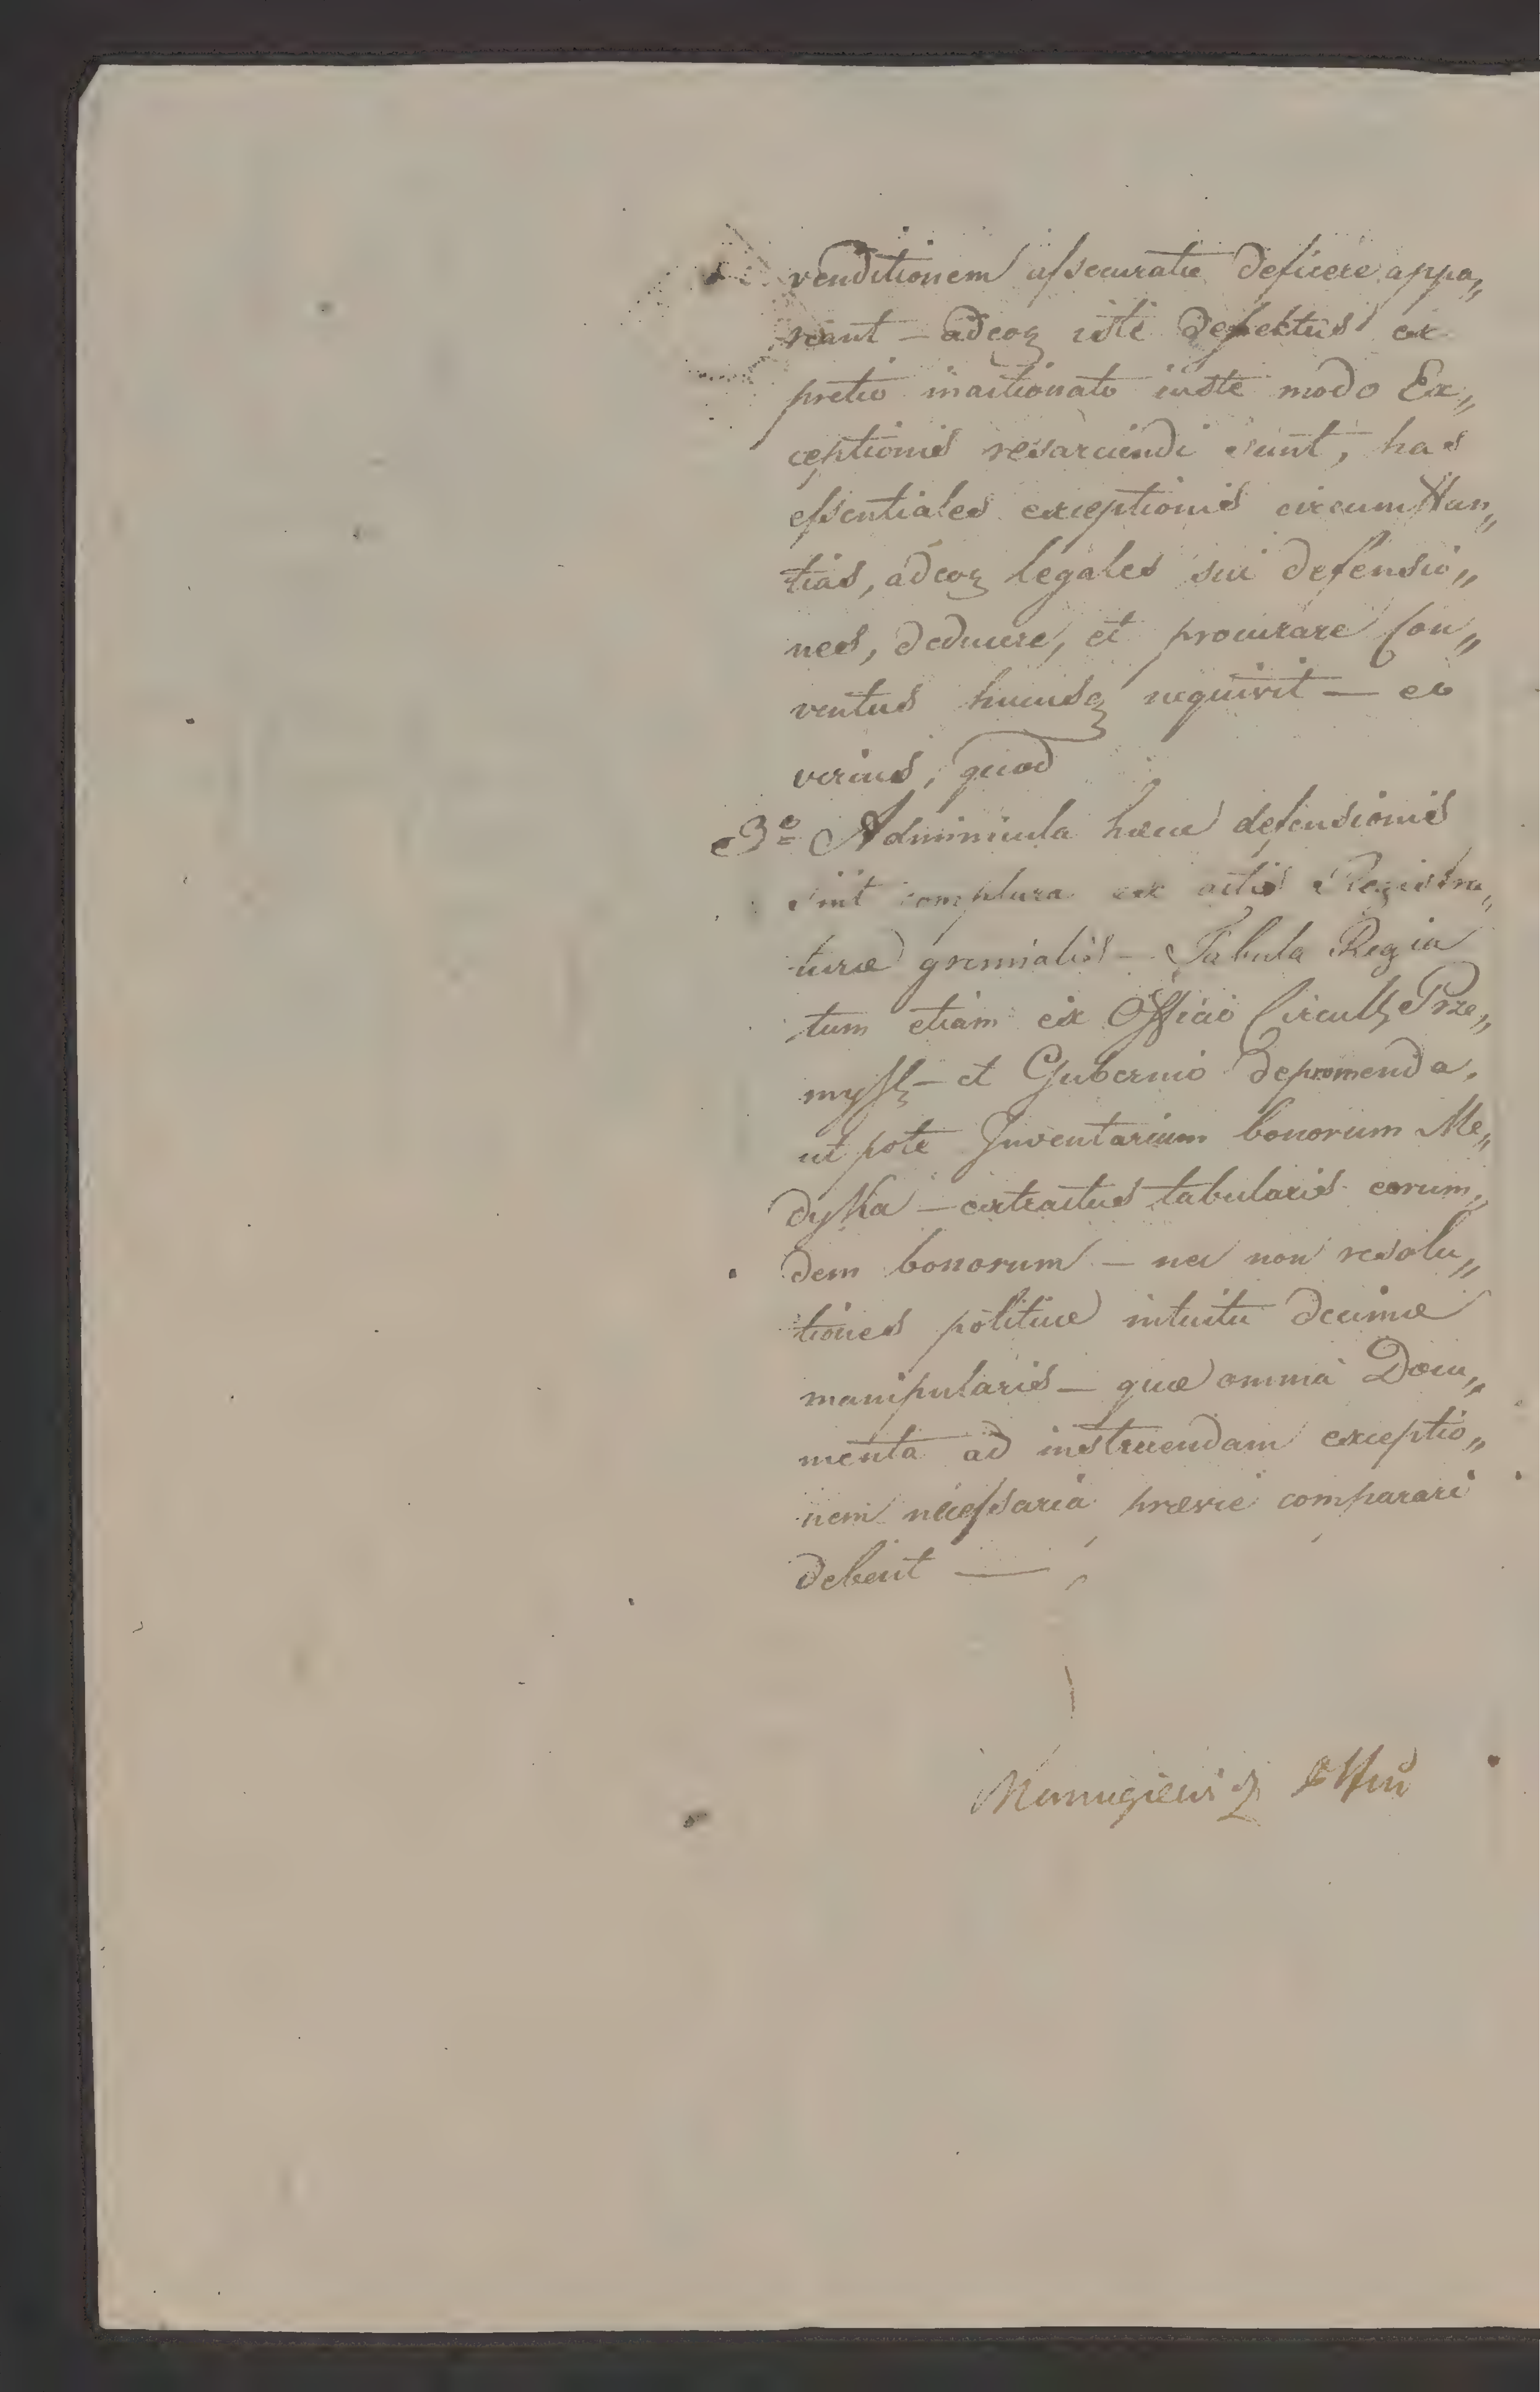 venditionem assecuratæ deficere appa„
reant – adeoq iste defectus ex
pretio inactionato iuste modo Ex„
ceptionis resarciendi sunt, has
essentiales exceptionis circumstan„
tias, adeoq legales sui defensio„
nes, deducere, et procurare Con„
ventus hucusq nequivit — eo
verius, quod
3º Adminicula hæce defensionis
sint complura ex actis Registra„
turæ gremialis – Tabula Regia
tum etiam ex Officio Circull Prze„
mysl – et Gubernio depromenda,
ut pote Inventarium bonorum Me„
dyka – extractus tabularis eorum„
dem bonorum – nec non resolu„
tiones politicæ intuitu decimæ
manipularis – quæ omnia Docu„
menta ad instruendam exceptio„
nem necessaria prævie comparari
debent —